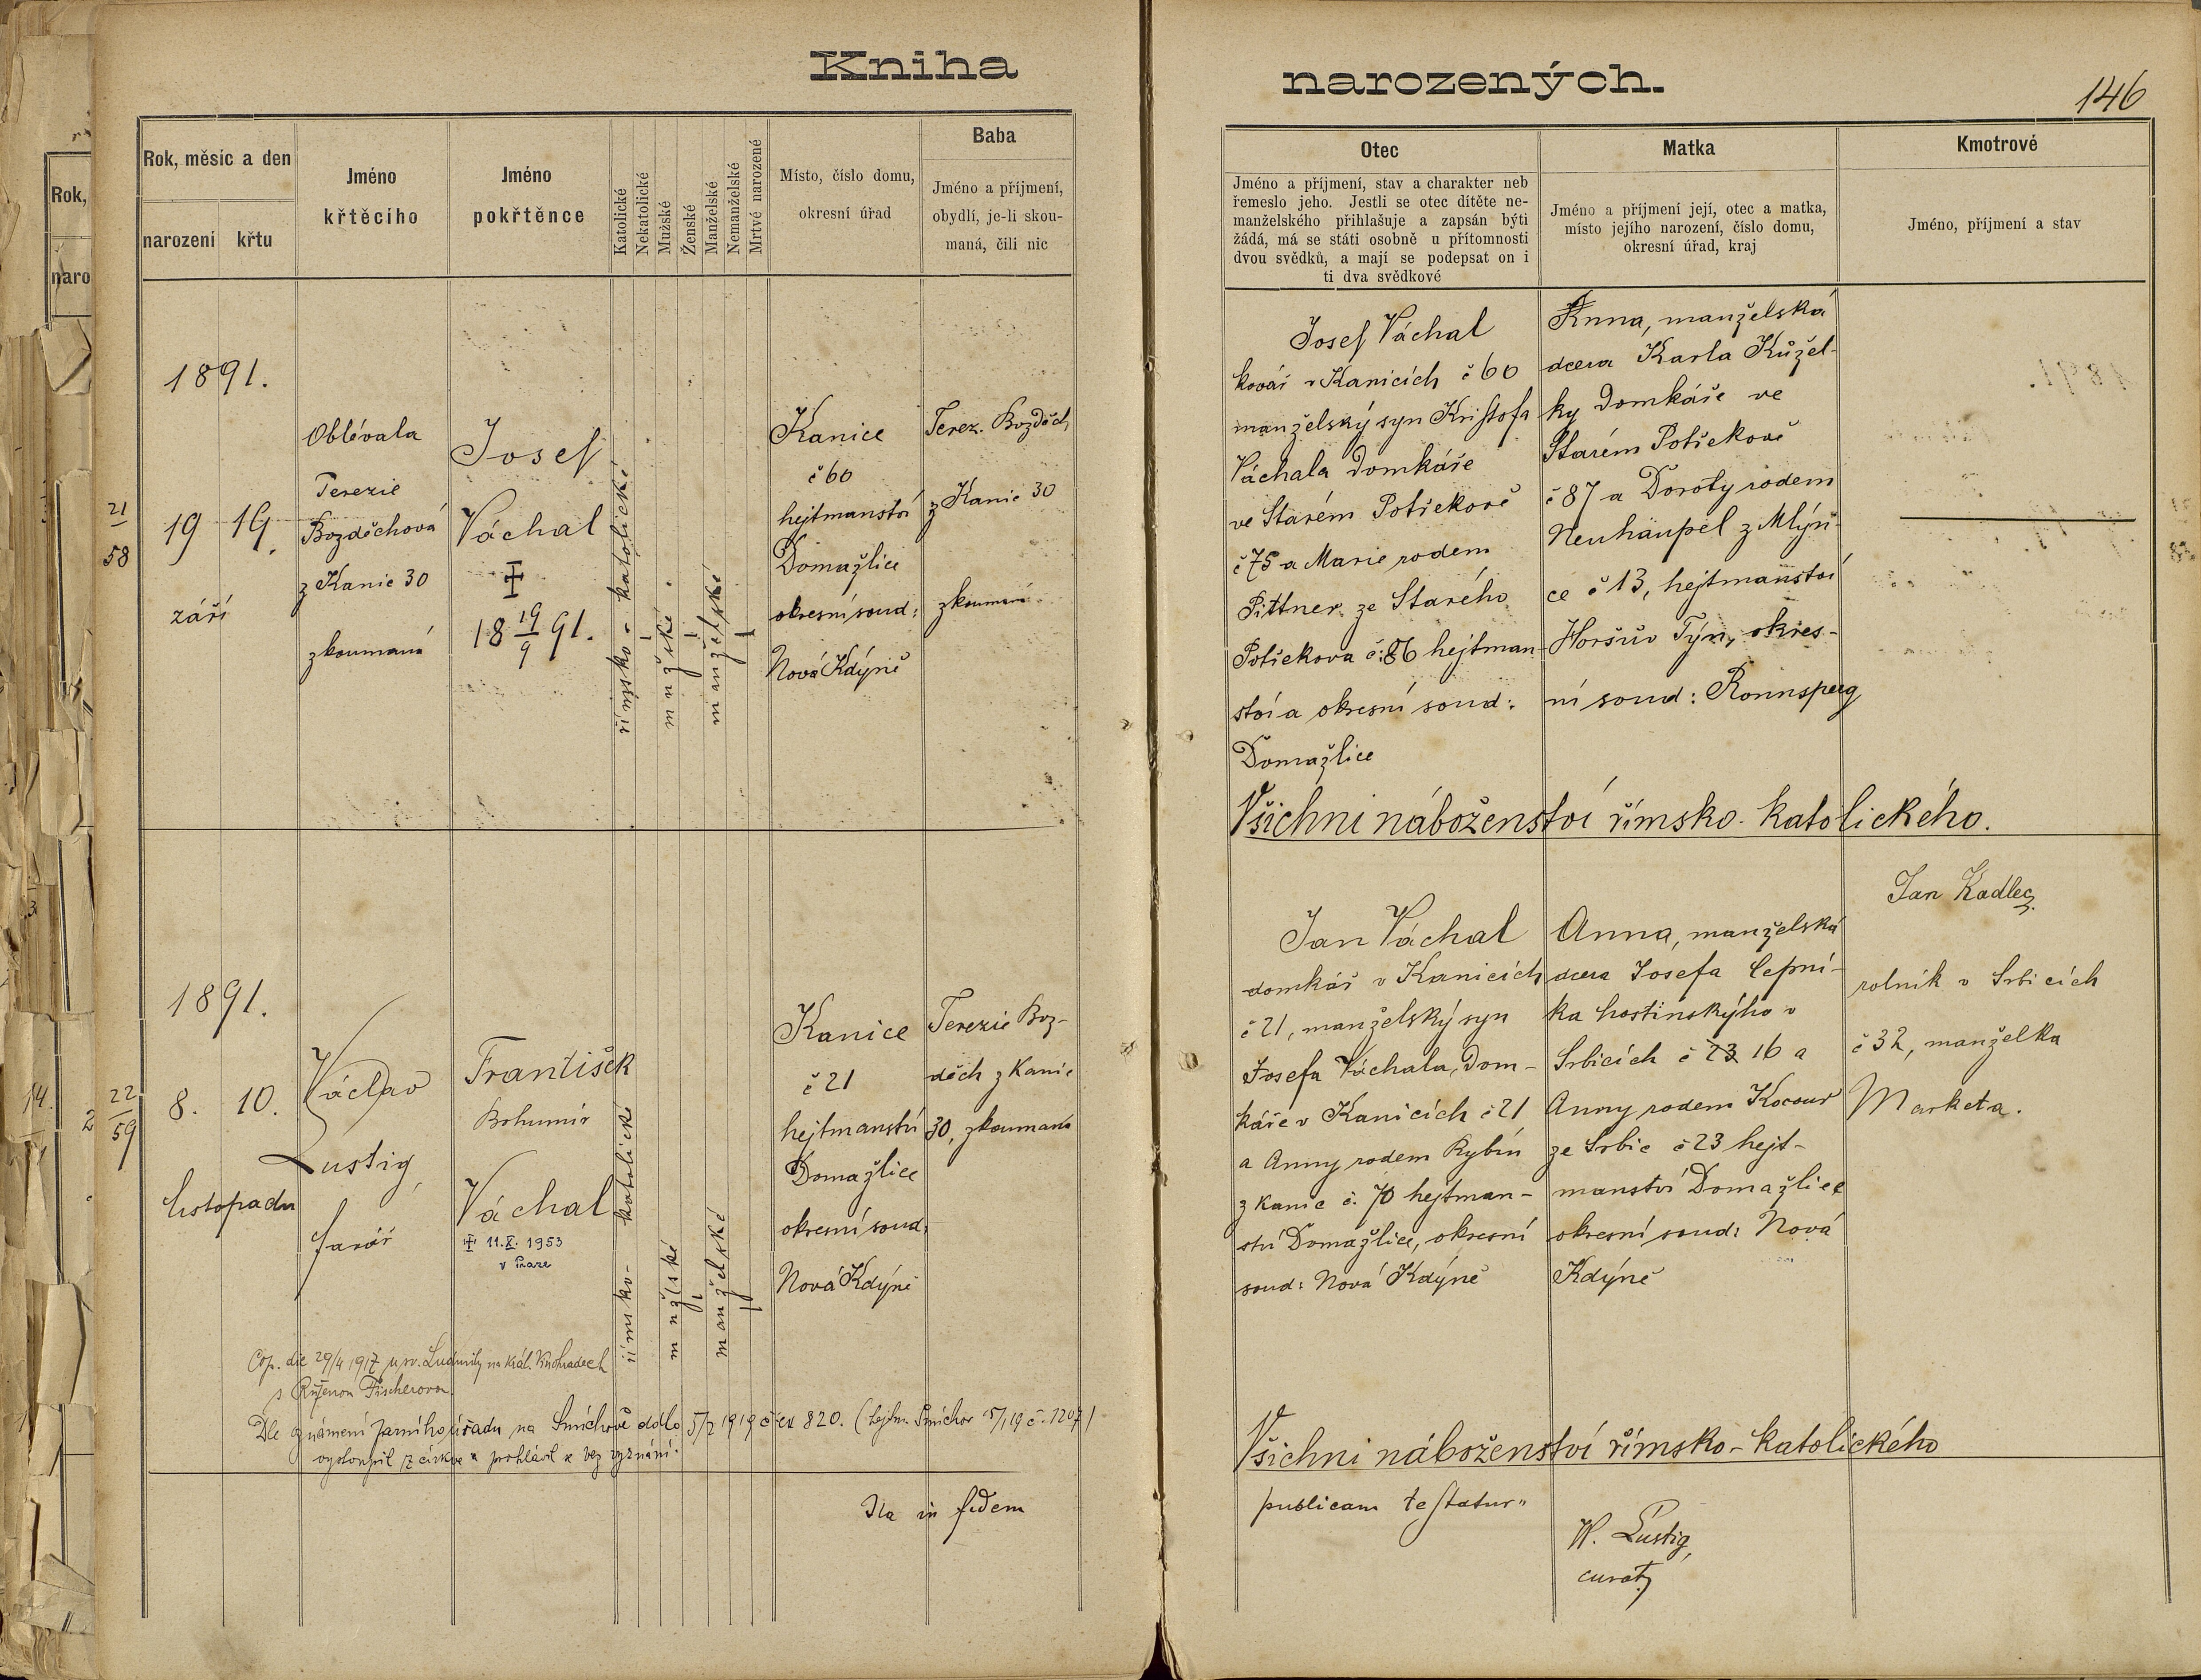 Kniha narozených.
146
Rok, měsíc a den
narození křtu
Jméno
křtěcího
Jméno
pokřtěnce
Katolické
Nekatolické
Mužské
Ženské
Manželské
Nemanželské
Mrtvě narozené
Místo, číslo domu,
okresní úřad
Baba
Jméno a příjmení,
obydlí, je-li skou-
maná, čili nic
Otec
Jméno a příjmení, stav a charakter neb
řemeslo jeho. Jestli se otec dítěte ne-
manželského přihlašuje a zapsán býti
žádá, má se státi osobně u přítomnosti
dvou svědků, a mají se podepsat on i
ti dva svědkové
Matka
Jméno a příjmení její, otec a matka,
místo jejího narození, číslo domu,
okresní úřad, kraj
Kmotrové
Jméno, příjmení a stav
Rok,
naro
21
58
1891.
19 19.
září
Oblévala
Terezie
Bozděchová
z Kanic 30
zkoumaná
Josef
Váchal
18 19/9 91.
římsko-katolické
mužské
manželské
Kanice
č 60
hejtmanství
Domažlice
okresní soud:
Nová Kdýně
Terez. Bozděch
z Kanic 30
zkoumaná
Josef Váchal
kovář v Kanicích č 60
manželský syn Kristofa
Váchala domkáře
ve Starém Potřekově
č 75 a Marie rodem
Pittner ze Starého
Potřekova č: 86 hejtman
ství a okresní soud:
Domažlice
Anna, manželská
dcera Karla Kůžel-
ky domkáře ve
Starém Potřekově
č 87 a Doroty rodem
Neuhäupel z Mlýn-
ce č 13, hejtmanství
Horšův Týn, okres-
ní soud: Ronnsperg
Všichni náboženství římsko-katolického.
22
59
1891.
8. 10.
listopadu
Václav
Lustig,
farář
František
Bohumír
Váchal
11.X.1953
v Praze
římsko-katolické
mužské
manželské
Kanice
č 21
hejtmanství
Domažlice
okresní soud:
Nová Kdýně
Terezie Boz-
děch z Kanic
30, zkoumaná
Jan Váchal
domkář v Kanicích
č 21, manželský syn
Josefa Váchala, dom-
káře v Kanicích č 21
a Anny rodem Rybín
z Kanic č. 70 hejtman-
ství Domažlice, okresní
soud: Nová Kdýně
Anna, manželská
dcera Josefa Čepní-
ka hostinskýho v
Srbicích č 23 16 a
Anny rodem Kocour
ze Srbic č 23 hejt-
manství Domažlice
okresní soud: Nová
Kdýně
Jan Kadlec,
rolník v Srbicích
č 32, manželka
Marketa.
Cop. die 29/4 1917 u sv. Ludmily na Král. Vinohradech
s Růženou Fischerovou.
Dle oznámení farního úřadu na Smíchově ddto 5/2 1919 č ex 820. (hejtm. Smíchov 15/1 19 č. 1207)
vystoupil z církve a prohlásil se bez vyznání.
Všichni náboženství římsko-katolického
Ita in fidem publicam testatur"
W. Lustig,
curat